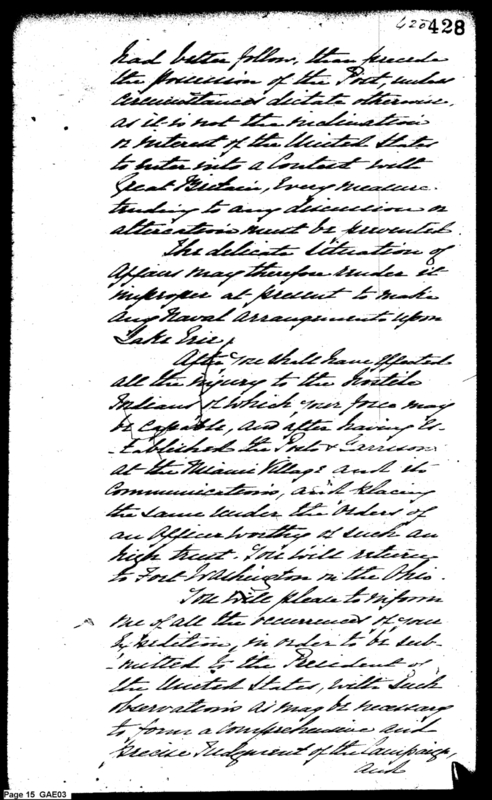 428
had better follow, than precede
the possession of the Post, unless
circumstances dictate otherwise.
as it is not the inclination
or interest of the United States
to enter into a Contest with
Great Britain, Every measure
tending to any discussion or
altercation must be prevented.
The delicate Situation of
Affairs may therefore render it
improper at present to make
any Naval arrangements upon
Lake Erie,
After you shall have effected
all the injury to the hostile
Indians of which your force may
be capable, and after having es-
-tablished the Posts & Garrisons
at the Miami Village and its
Communications, and placing
the same under the orders of
an Officer worthy of such an
high trust. You will return
to Fort Washington on the Ohio.
You will please to inform
me of all the occurrences of your
Expedition, in order to be sub-
-mitted to the President of
the United States, with such
observations as may be necessary
to form a comprehensive and
precise Judgment of the Campaign,
and
Page 15 GAE03